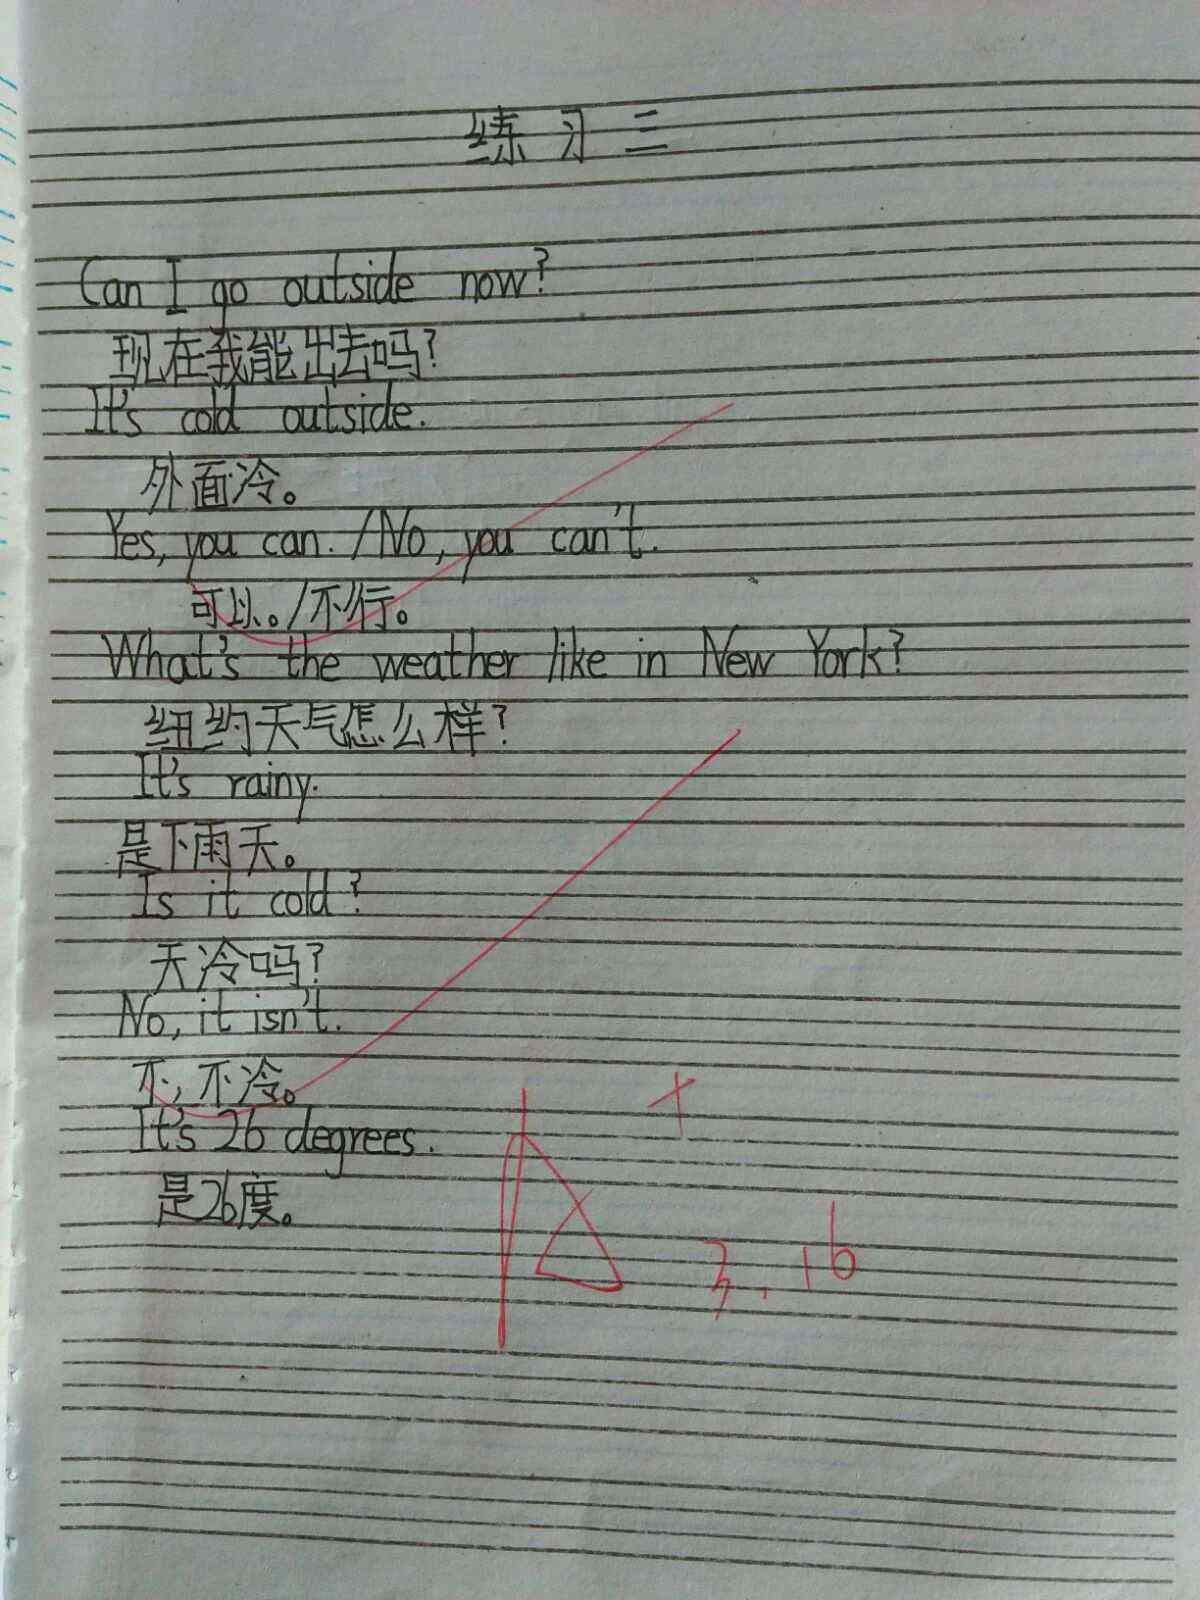 练习三
Can I go outside now?
现在我能出去吗?
It's cold outside.
外面冷。
Yes, you can. /No, you can't.
可以。/不行。
What's the weather like in New York?
纽约天气怎么样?
It's rainy.
是下雨天。
Is it cold?
天冷吗?
No, it isn't.
不,不冷。
It's 26 degrees.
是26度。
A+
3.16